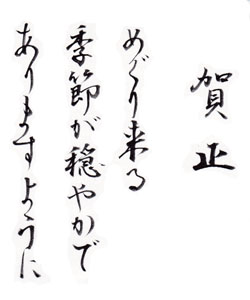 賀正
めぐり来る
季節が穏やかで
ありますように